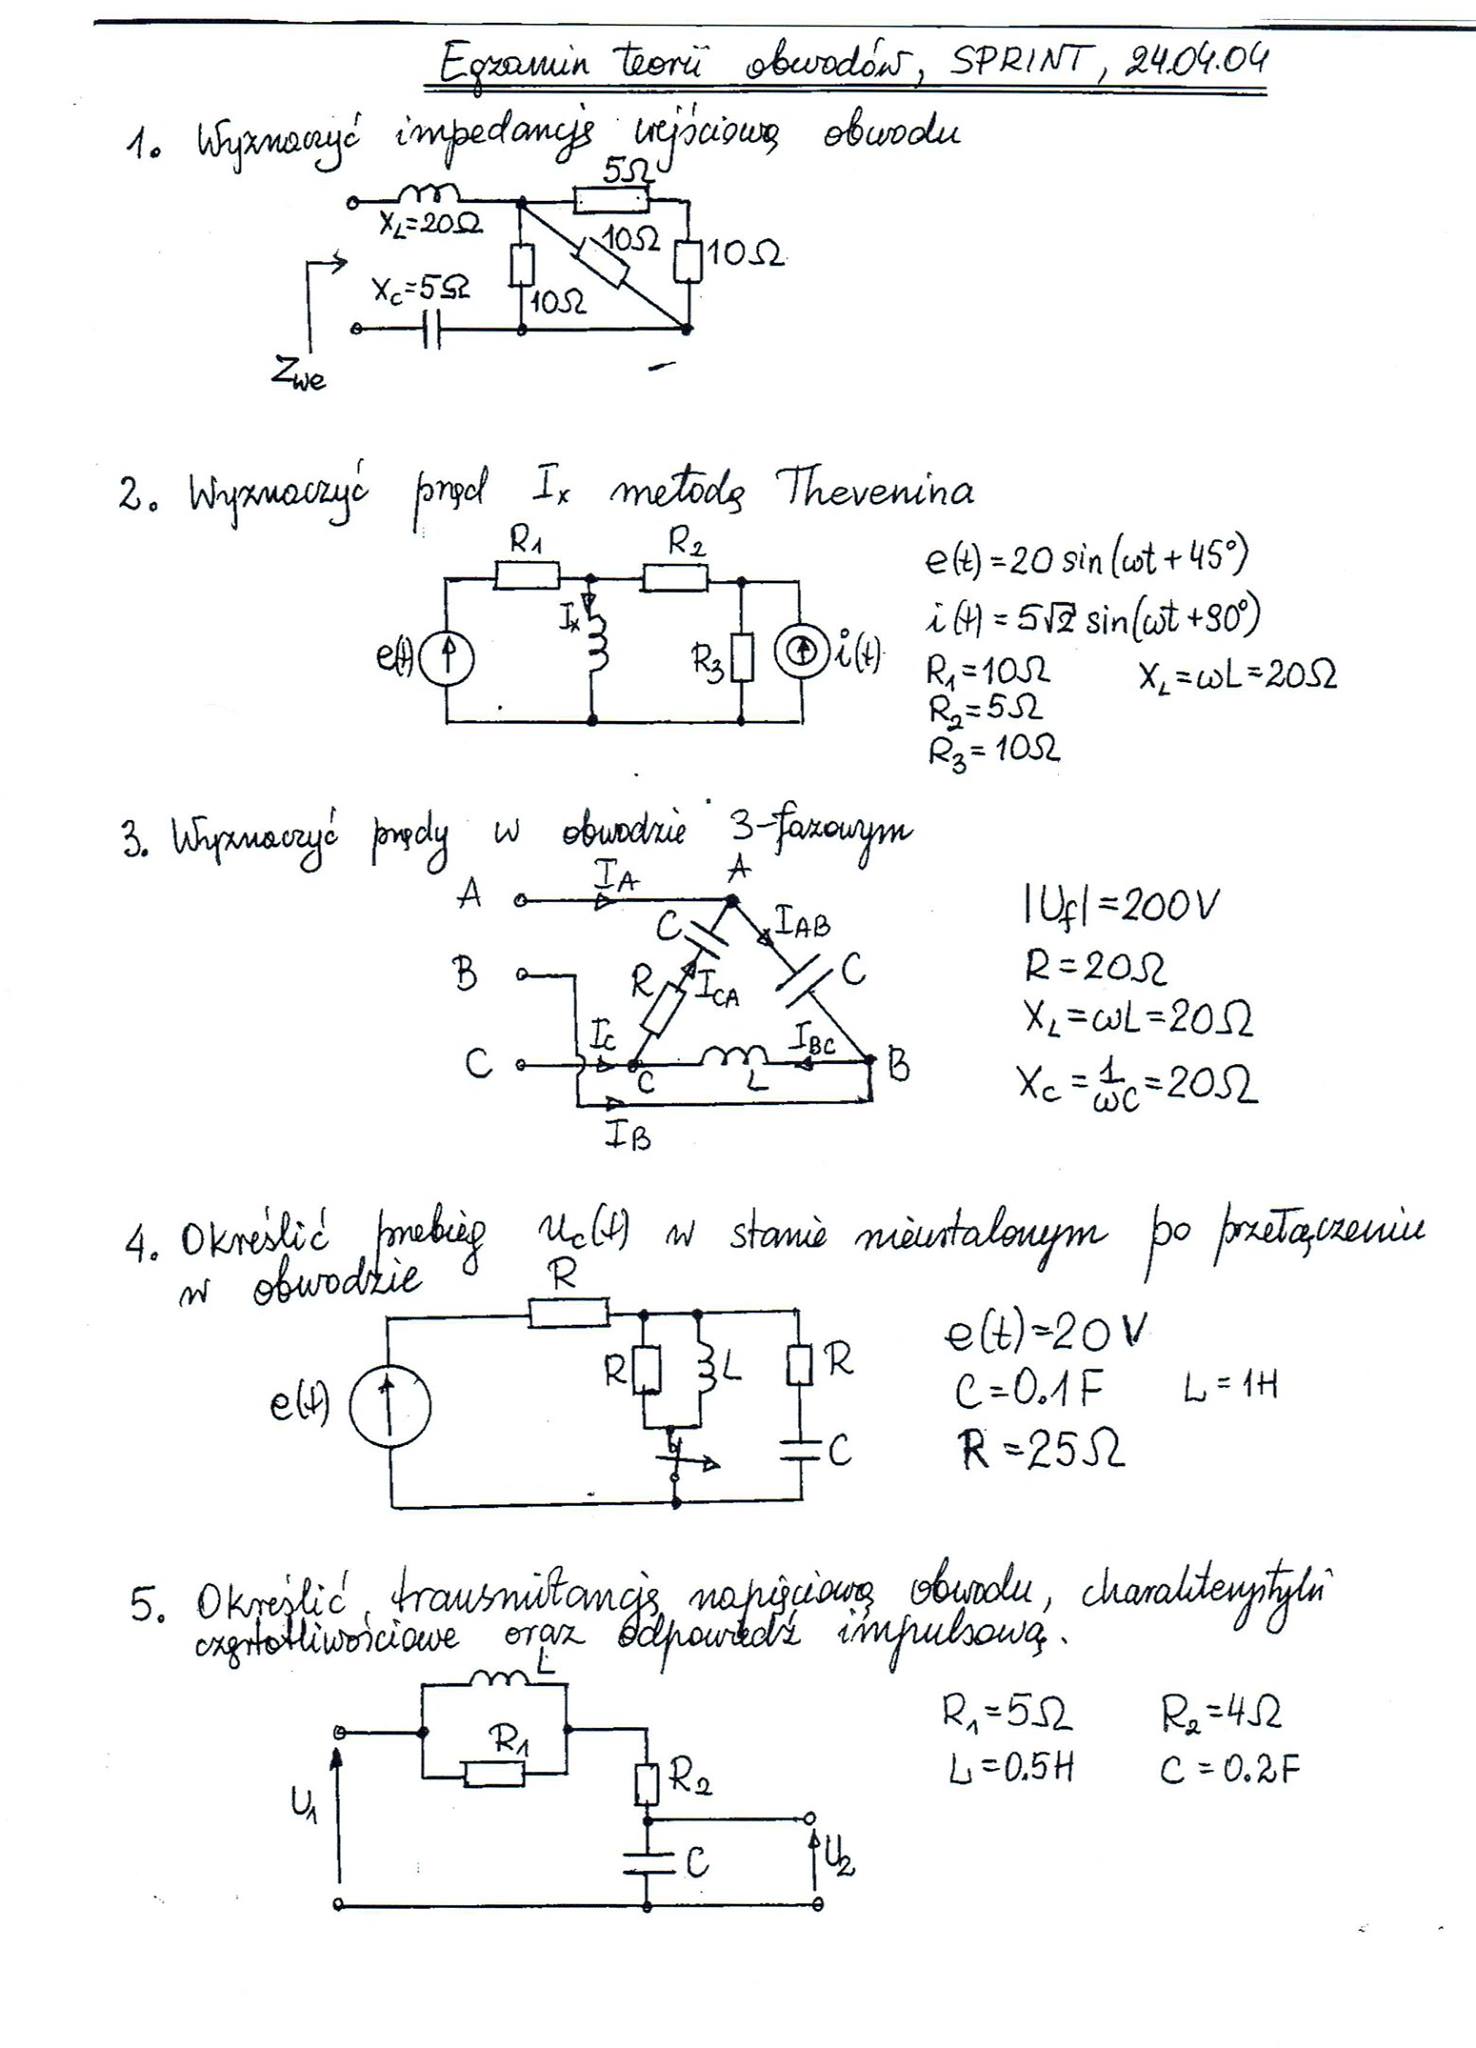 Egzamin teorii obwodów, SPRINT, 24.04.04
1. Wyznaczyć impedancję wejściową obwodu
5Ω
X_L=20Ω
10Ω
10Ω
X_C=5Ω
10Ω
Z_we
2. Wyznaczyć prąd I_x metodą Thevenina
R_1
R_2
e(t)=20 sin(ωt+45°)
I_x
i(t)=5√2 sin(ωt+90°)
e(t)
R_3
i(t)
R_1=10Ω
X_L=ωL=20Ω
R_2=5Ω
R_3=10Ω
3. Wyznaczyć prądy w obwodzie 3-fazowym
A
I_A
A
|U_f|=200V
C
I_AB
B
R
I_CA
C
R=20Ω
X_L=ωL=20Ω
C
I_C
C
L
I_BC
B
X_C=1/ωC=20Ω
I_B
4. Określić przebieg u_c(t) w stanie nieustalonym po przełączeniu
w obwodzie
R
e(t)=20V
R
L
R
C=0.1F
L=1H
e(t)
C
R=25Ω
5. Określić transmitancję napięciową obwodu, charakterystyki
częstotliwościowe oraz odpowiedź impulsową.
L
R_1
R_1=5Ω
R_2=4Ω
R_2
L=0.5H
C=0.2F
U_1
C
U_2